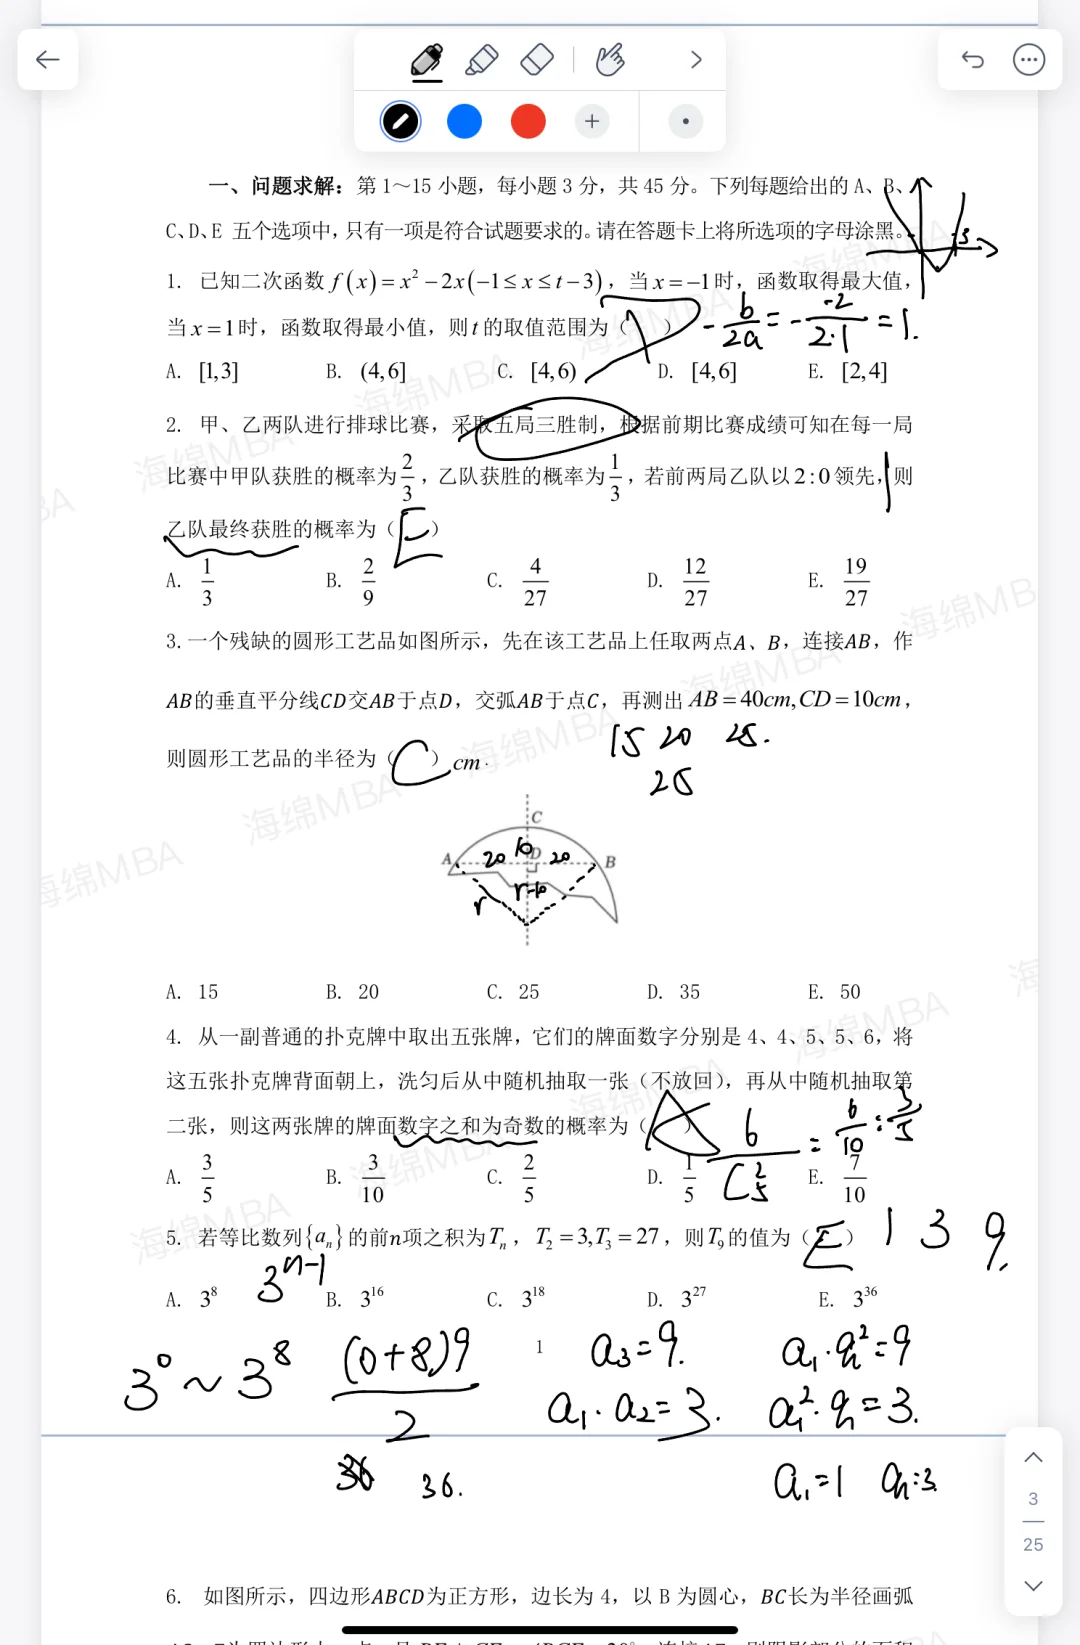 一、问题求解：第 1～15 小题，每小题 3 分，共 45 分。下列每题给出的 A、B、
C、D、E 五个选项中，只有一项是符合试题要求的。请在答题卡上将所选项的字母涂黑。
3
1. 已知二次函数 f(x)=x²−2x(−1≤x≤t−3)，当 x=−1时，函数取得最大值，
当 x=1时，函数取得最小值，则 t 的取值范围为（ ）
-b/2a = -(-2)/(2·1) = 1.
A. [1,3] B. (4,6] C. [4,6) D. [4,6] E. [2,4]
2. 甲、乙两队进行排球比赛，采取五局三胜制，根据前期比赛成绩可知在每一局
比赛中甲队获胜的概率为 2/3，乙队获胜的概率为 1/3，若前两局乙队以 2:0 领先，则
乙队最终获胜的概率为（ E ）
A. 1/3 B. 2/9 C. 4/27 D. 12/27 E. 19/27
3.一个残缺的圆形工艺品如图所示，先在该工艺品上任取两点A、B，连接AB，作
AB的垂直平分线CD交AB于点D，交弧AB于点C，再测出 AB=40cm,CD=10cm，
则圆形工艺品的半径为（ C ）cm.
15 20 25.
25
C
A 20 10 D 20 B
r r-10
A. 15 B. 20 C. 25 D. 35 E. 50
4. 从一副普通的扑克牌中取出五张牌，它们的牌面数字分别是 4、4、5、5、6，将
这五张扑克牌背面朝上，洗匀后从中随机抽取一张（不放回），再从中随机抽取第
二张，则这两张牌的牌面数字之和为奇数的概率为（ A ）
6/C₅² = 6/10 = 3/5
A. 3/5 B. 3/10 C. 2/5 D. 1/5 E. 7/10
5. 若等比数列{aₙ}的前n项之积为Tₙ，T₂=3,T₃=27，则T₉的值为（ E ） 1 3 9.
3ⁿ⁻¹
A. 3⁸ B. 3¹⁶ C. 3¹⁸ D. 3²⁷ E. 3³⁶
1
3⁰ ~ 3⁸ (0+8)9/2 a₃=9. a₁·q²=9
a₁·a₂=3. a₁²·q=3.
36. a₁=1 q=3
3
25
6. 如图所示，四边形ABCD为正方形，边长为 4，以 B 为圆心，BC长为半径画弧
海绵MBA